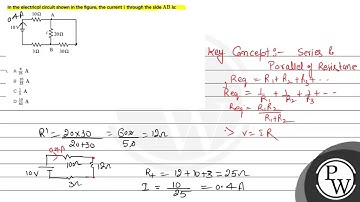 In the electrical circuit shown in the figure, the current i through the side AB is:
0.4A 10Ω A
10V i 20Ω 30Ω
3Ω B
A A
B A
C A
D A
Key Concept:- Series &
Parallel of Resistance
Req = R1 + R2 + R3 + ...
1/Req = 1/R1 + 1/R2 + 1/R3 ...
Req = R1R2/R1+R2
> V = IR
R' = 20×30/20+30 = 600/50 = 12Ω
0.4A
10Ω
10V 12Ω
3Ω
R+ = 12+10+3 = 25Ω
I = 10/25 = 0.4A
PW